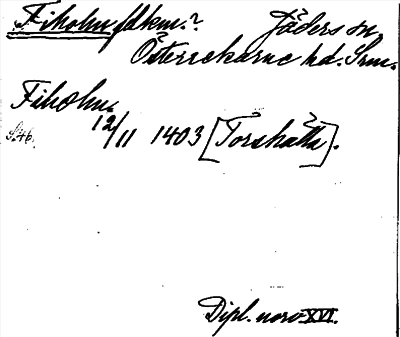 Fiholm fdkm.? Jäders sn
Österrekarne hd. Srm.
Fiholm.
S.46. 12/11 1403 [Torshälla].
Dipl. norv. XVI.